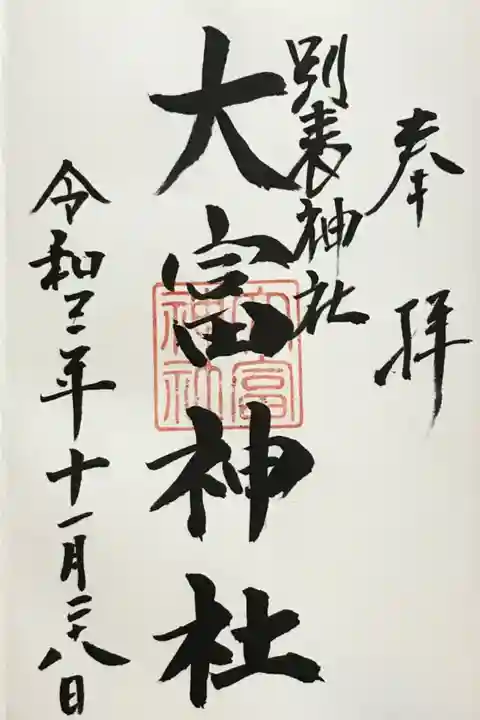 奉拝
別表神社
大富神社
大富
神社
令和三年十一月二十八日